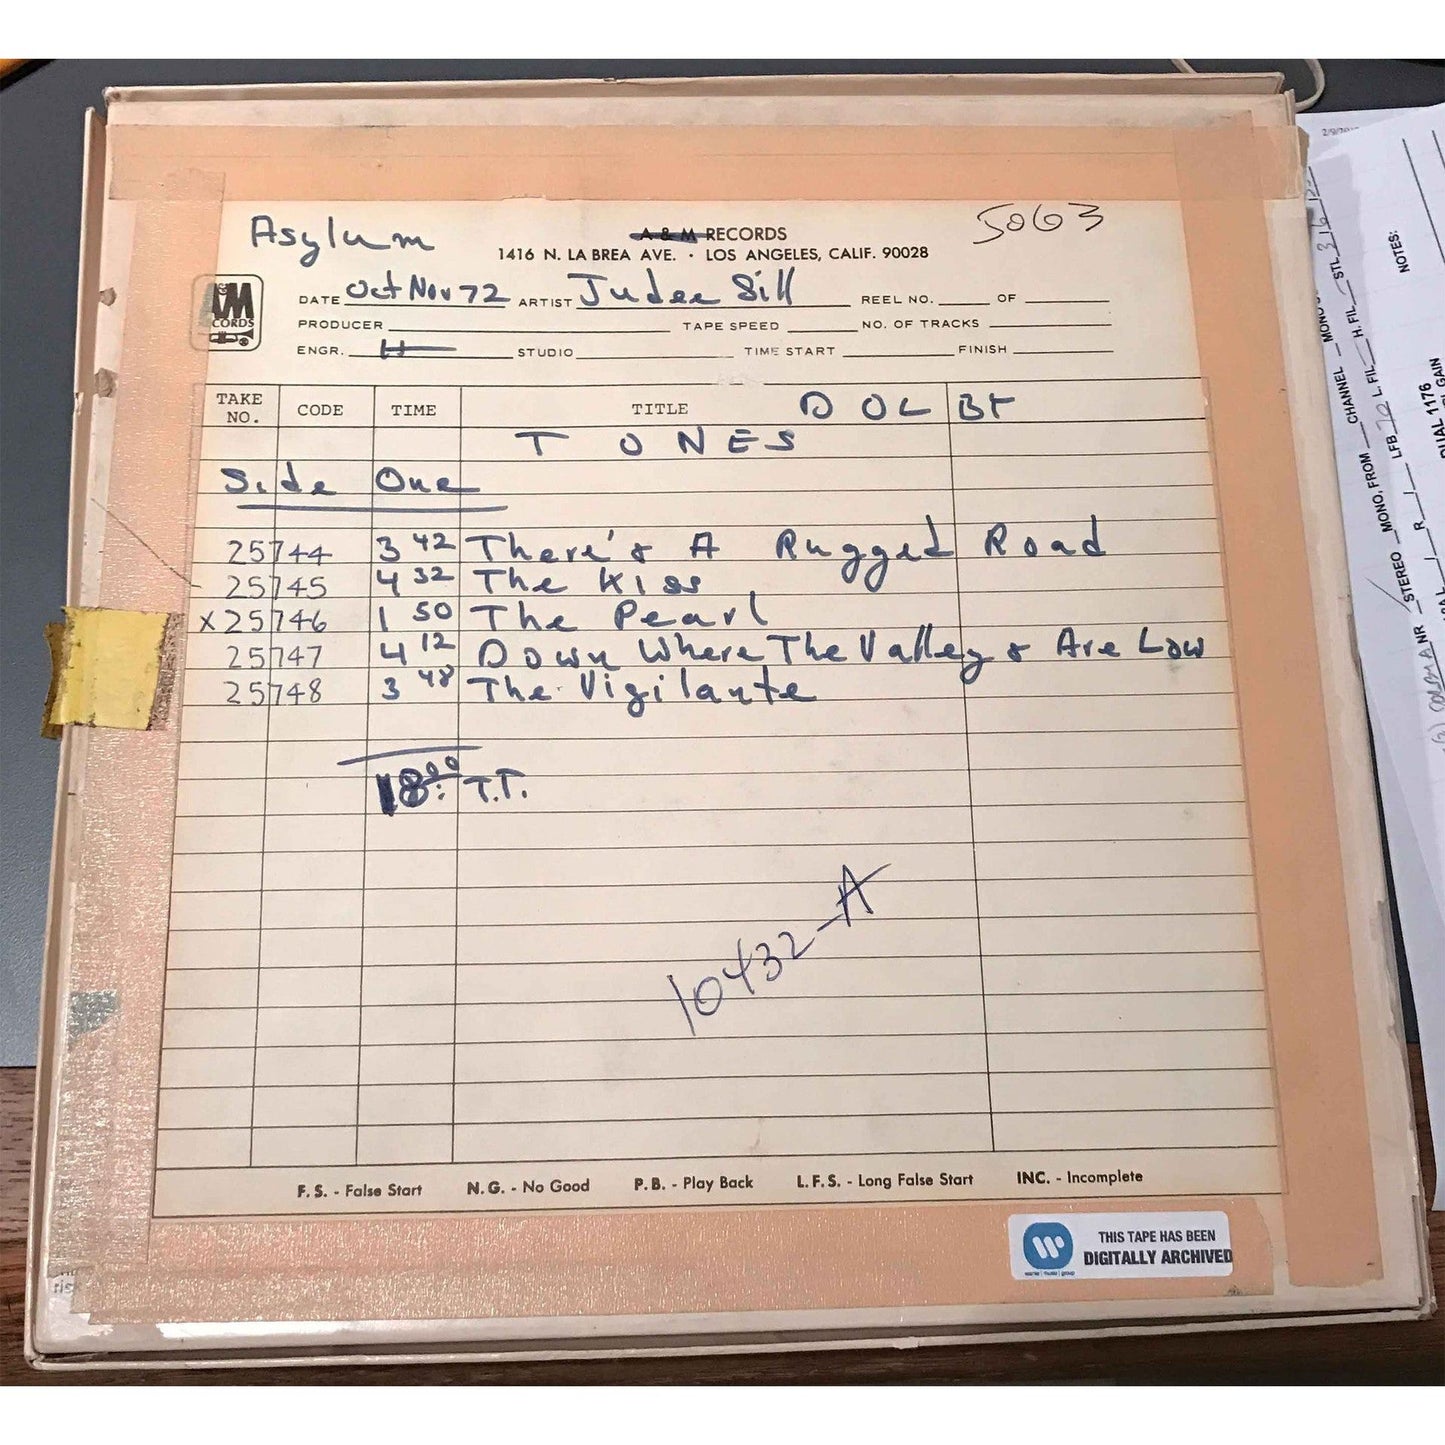 Asylum
A & M RECORDS
5063
1416 N. LA BREA AVE. • LOS ANGELES, CALIF. 90028
DATE Oct Nov 72 ARTIST Judee Sill REEL NO. OF
PRODUCER TAPE SPEED NO. OF TRACKS
ENGR. STUDIO TIME START FINISH
TAKE NO. CODE TIME TITLE DOLBY
TONES
Side One
25744 3 42 There's A Rugged Road
25745 4 32 The Kiss
x 25746 1 50 The Pearl
25747 4 12 Down Where The Valleys Are Low
25748 3 48 The Vigilante
18:00 T.T.
10432-A
F. S. - False Start N. G. - No Good P. B. - Play Back L. F. S. - Long False Start INC. - Incomplete
THIS TAPE HAS BEEN
DIGITALLY ARCHIVED
warner music group
NOTES:
STEREO MONO, FROM CHANNEL
LFB 20 L. FIL H. FIL STL
DUAL 1176
GAIN